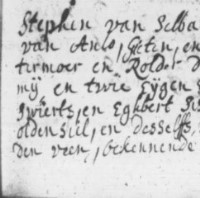 Stephen van Selba
van Anlo, Gieten, en
termoer en Rolder D
mij en twie Eijgen E
Iwierts, en Egbert
oldensiel, en desselffs,
den veen, bekennende